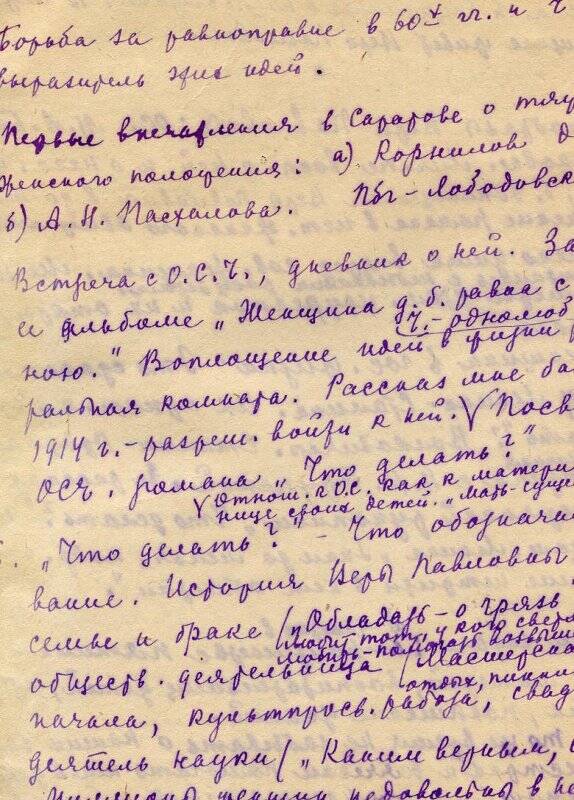 Борьба за равноправие в 60х гг. и Ч
выразитель этих идей.
Первые впечатления в Саратове о тяж
женского положения: а) Корнилов д
б) А.Н. Пасхалова. Пбг - Лободовск
Встреча с О.С.Ч., дневник о ней. За
и альбоме „Женщина д.б. равна с
Ч. - однолюб
ною." Воплощение идей в жизни
ральная комната. Рассказ мне ба
1914 г. - разреш. войти к ней. V Посв
ОСЧ. романа „Что делать?"
V Отнош. к О.С. как к матери
нице своих детей. „Мать-суще
„Что делать?" - Что обознача
вание. История Веры Павловны
семье и браке / „Обладать - о грязь
может тот, у кого сверх
мочь - помогать возвыш
обществ. деятельница / Мастерска
отдых, пикни
начала, культпросв. работа, свад
деятель науки / „Каким верным, с
женщин недовольны в